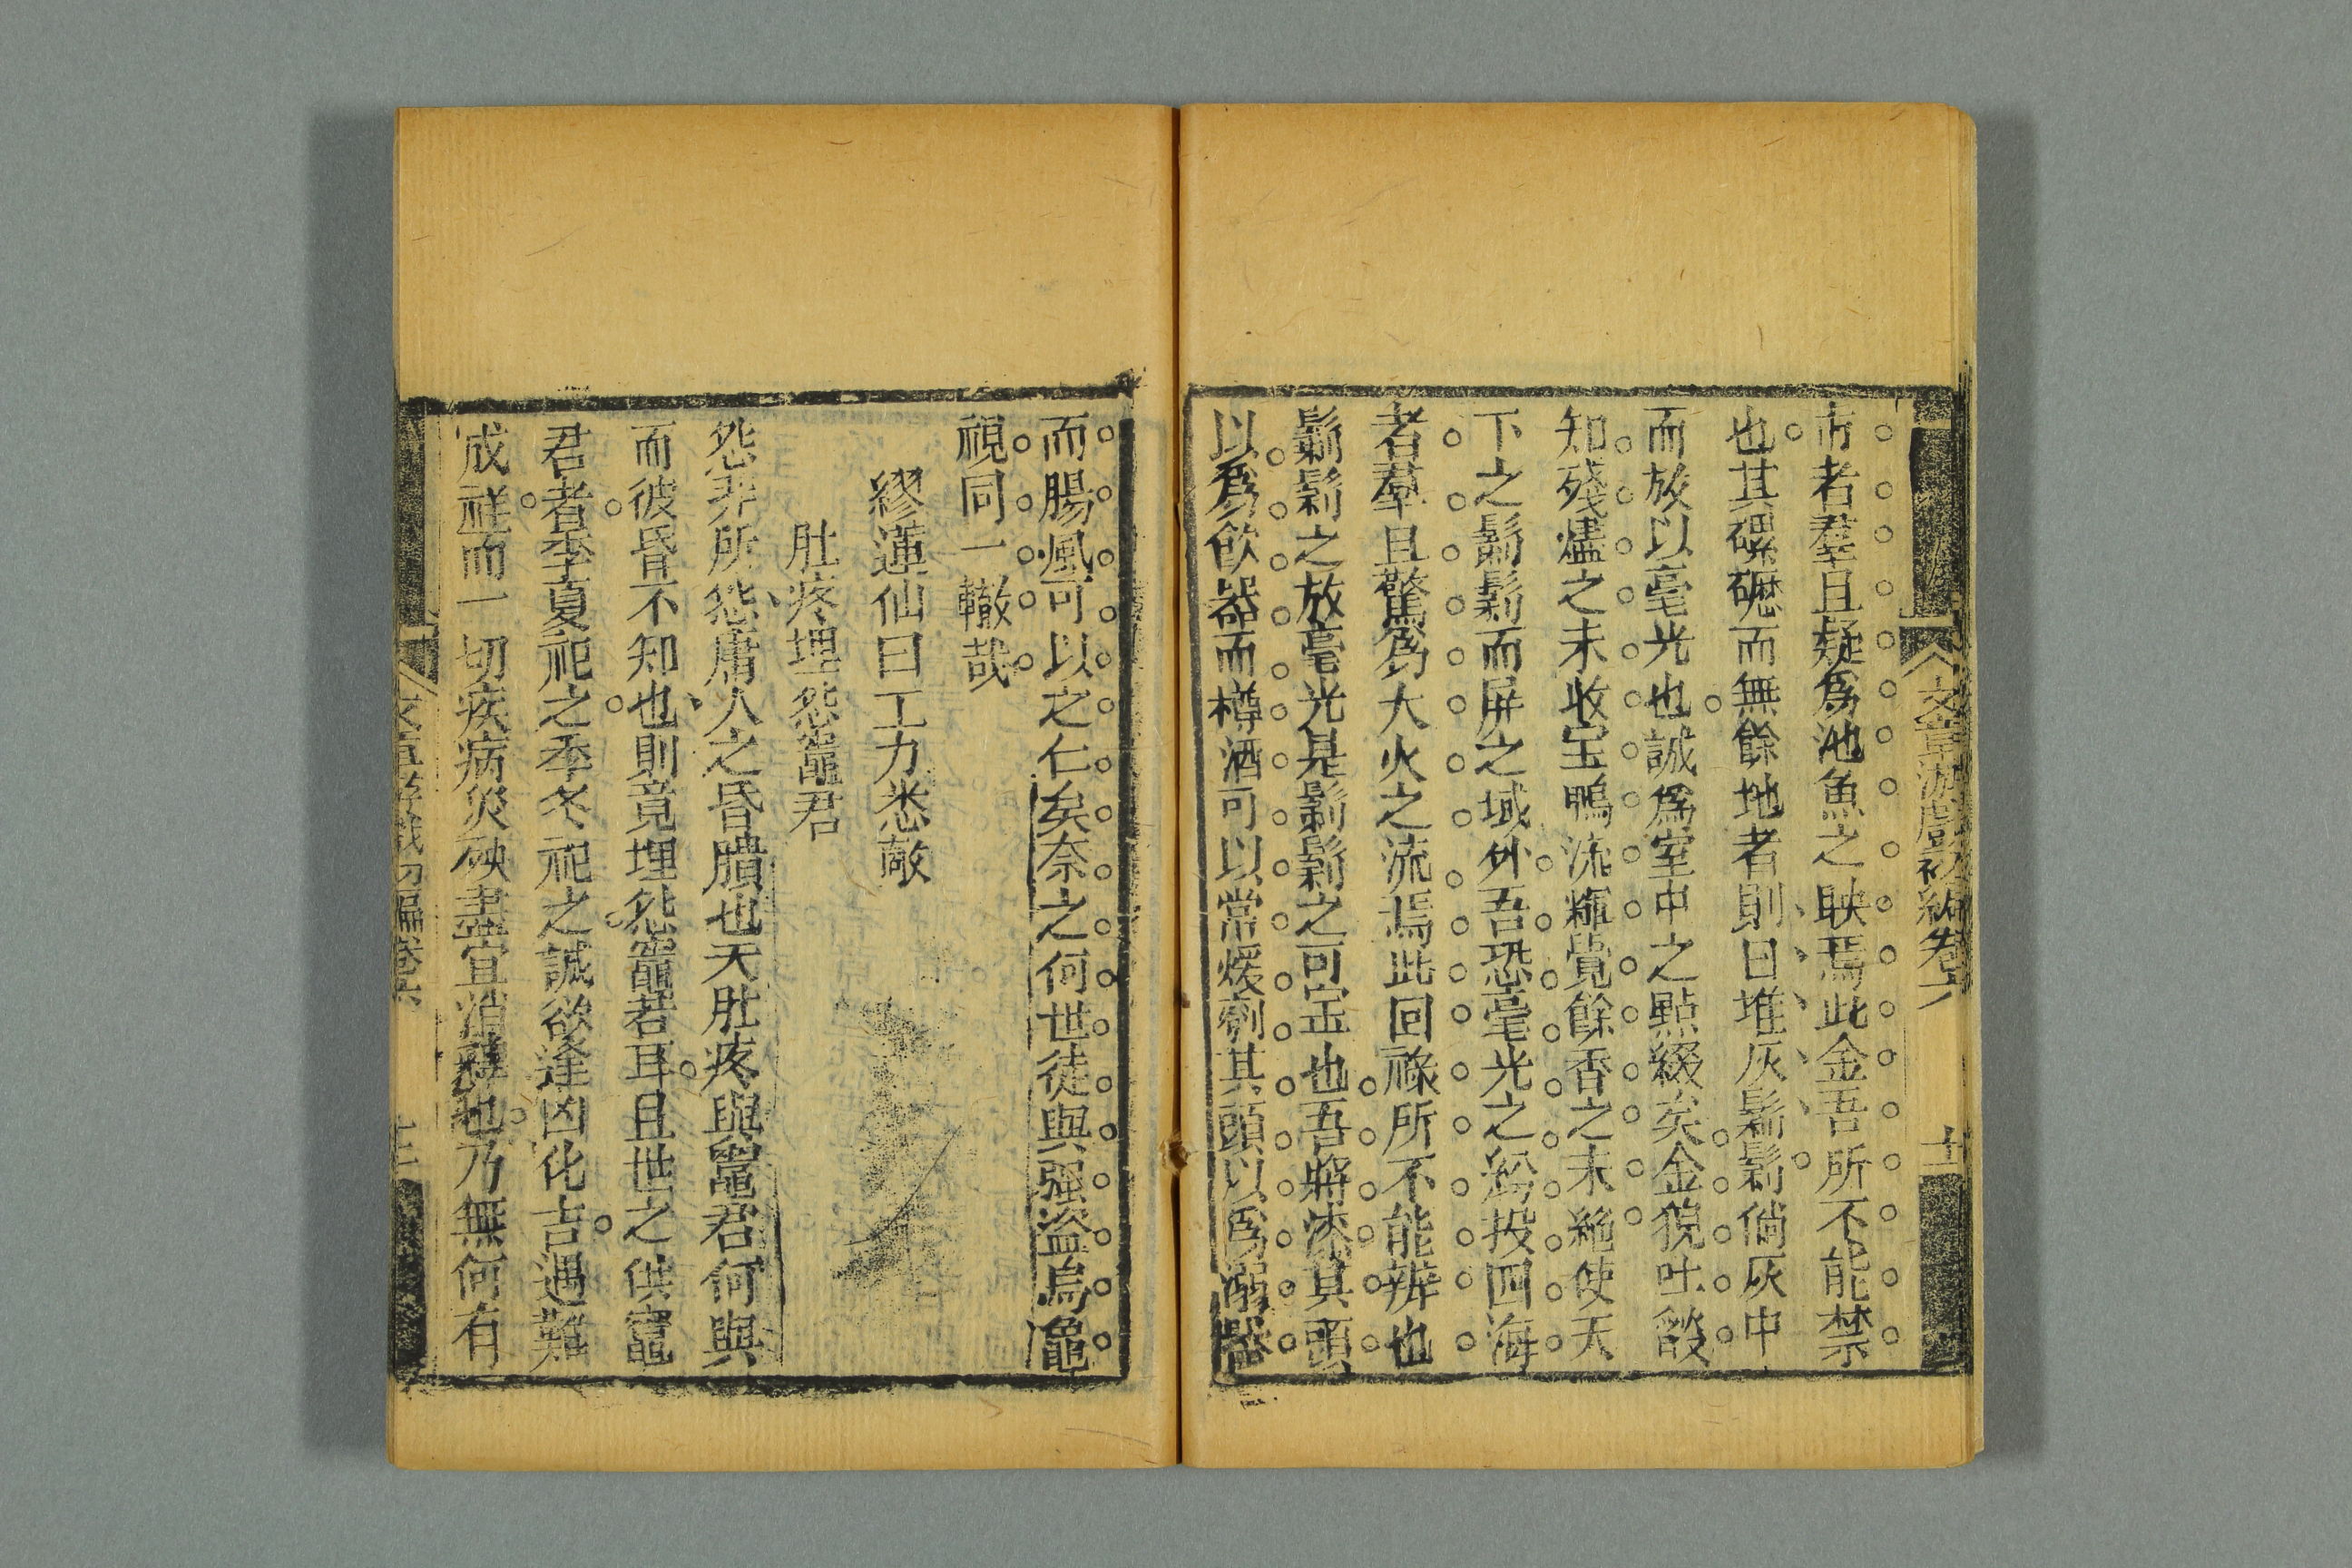 文章游戲初編卷六
十二
市者羣且疑爲池魚之映焉此金吾所不能禁
也其礧礰而無餘地者則曰堆灰鬅鬆倘灰中
而放以毫光也誠爲室中之點綴矣金猊吐燄
知殘燼之未收宝鴨流輝覺餘香之未絶使天
下之鬅鬆而屏之域外吾恐毫光之爲投四海
者羣且驚爲大火之流焉此回祿所不能辨也
鬅鬆之放毫光是鬅鬆之可宝也吾將漆其頭
以爲飲器而樽酒可以常煖剜其頭以爲溺器
而腸風可以之仁矣奈之何世徒與强盗烏龜
視同一轍哉
繆蓮仙曰工力悉敵
肚疼埋怨竈君
怨非所怨庸人之昏膭也夫肚疼與竈君何與
而彼昏不知也則竟埋怨竈君耳且世之供竈
君者季夏祀之季冬祀之誠欲逢凶化吉遇難
成祥而一切疾病災殃盡宜消釋也乃無何有
文章游戲初編卷六